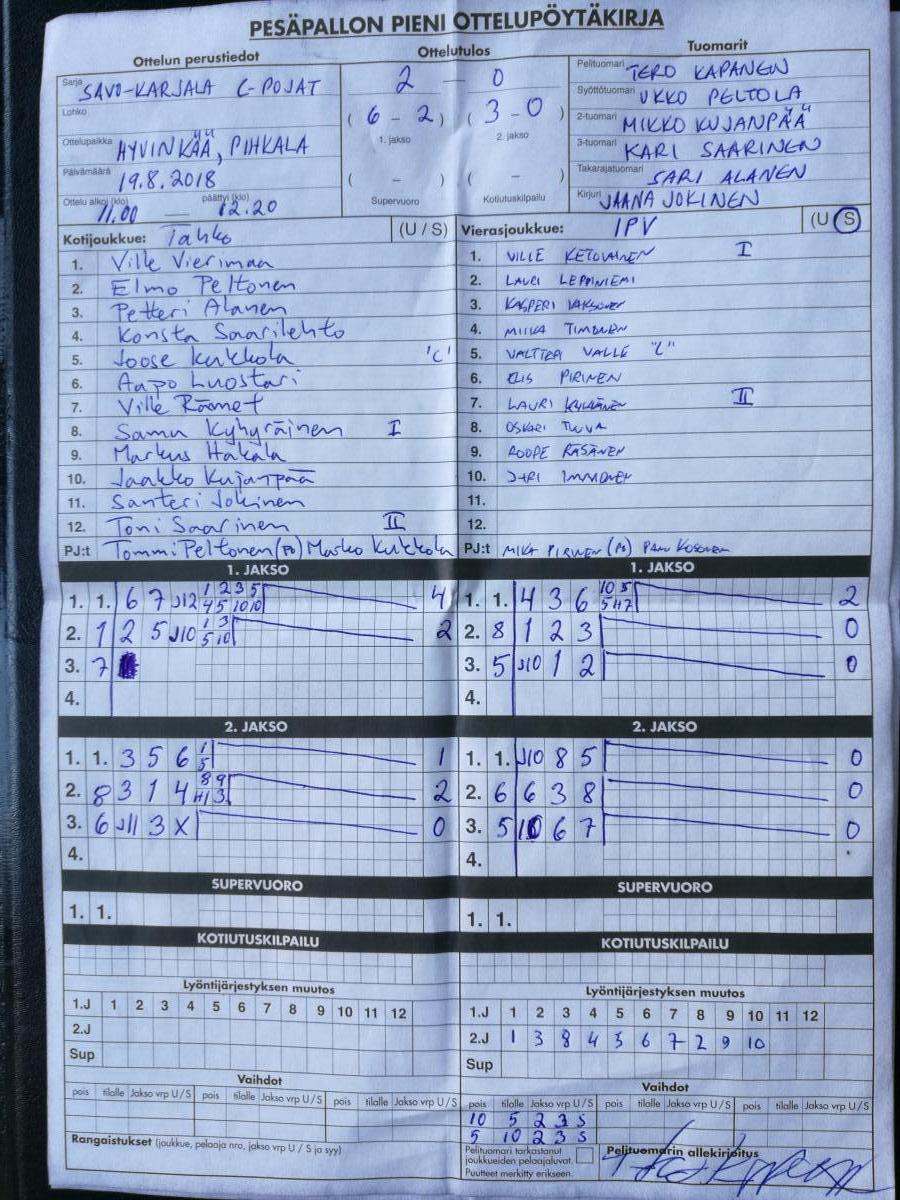 PESÄPALLON PIENI OTTELUPÖYTÄKIRJA
Ottelun perustiedot
Sarja SAVO-KARJALA C-POJAT
Lohko
Ottelupaikka HYVINKÄÄ, PIHKALA
Päivämäärä 19.8.2018
Ottelu alkoi (klo) 11.00 — päättyi (klo) 12.20
Ottelutulos
2 — 0
( 6 - 2 ) ( 3 - 0 )
1. jakso 2. jakso
( - ) ( - )
Supervuoro Kotiutuskilpailu
Tuomarit
Pelituomari TERO KAPANEN
Syöttötuomari UKKO PELTOLA
2-tuomari MIKKO KUJANPÄÄ
3-tuomari KARI SAARINEN
Takarajatuomari SARI ALANEN
Kirjuri JAANA JOKINEN
Kotijoukkue: Tahko (U / S)
1. Ville Vierimaa
2. Elmo Peltonen
3. Petteri Alanen
4. Konsta Saarilehto
5. Joose Kukkola 'C'
6. Aapo Luostari
7. Ville Rämet
8. Samu Kyhyräinen I
9. Markus Hakala
10. Jaakko Kujanpää
11. Santeri Jokinen
12. Toni Saarinen II
PJ:t Tommi Peltonen (PJ) Marko Kukkola
Vierasjoukkue: IPV (U / S)
1. VILLE KETOLAINEN I
2. LAURI LEPPINIEMI
3. KASPERI
4. MIIKA TIMONEN
5. VALTTERI VALLE "C"
6. ELIS PIRINEN
7. LAURI II
8. OSKARI TUUVA
9. ROOPE RÄSÄNEN
10. JARI IMMONEN
11.
12.
PJ:t MIKA PIRINEN (PJ) PANU KOSONEN
1. JAKSO
1. 1. 6 7 J12 1 2 3 5 4
4 5 10 10
2. 1 2 5 J10 1 3 2
5 10
3. 7
4.
2. JAKSO
1. 1. 3 5 6 1 1
5
2. 8 3 1 4 8 9 2
H1 3
3. 6 J11 3 X 0
4.
SUPERVUORO
1. 1.
KOTIUTUSKILPAILU
Lyöntijärjestyksen muutos
1.J 1 2 3 4 5 6 7 8 9 10 11 12
2.J
Sup
Vaihdot
pois tilalle Jakso vrp U / S pois tilalle Jakso vrp U / S pois tilalle Jakso vrp U / S
Rangaistukset (joukkue, pelaaja nro, jakso vrp U / S ja syy)
1. JAKSO
1. 1. 4 3 6 10 5 2
5 H7
2. 8 1 2 3 0
3. 5 J10 1 2 0
4.
2. JAKSO
1. 1. J10 8 5 0
2. 6 6 3 8 0
3. 5 6 7 0
4.
SUPERVUORO
1. 1.
KOTIUTUSKILPAILU
Lyöntijärjestyksen muutos
1.J 1 2 3 4 5 6 7 8 9 10 11 12
2.J 1 3 8 4 5 6 7 2 9 10
Sup
Vaihdot
pois tilalle Jakso vrp U / S pois tilalle Jakso vrp U / S pois tilalle Jakso vrp U / S
10 5 2 3 S
5 10 2 3 S
Pelituomari tarkastanut
joukkueiden pelaajaluvat.
Puutteet merkitty erikseen.
Pelituomarin allekirjoitus